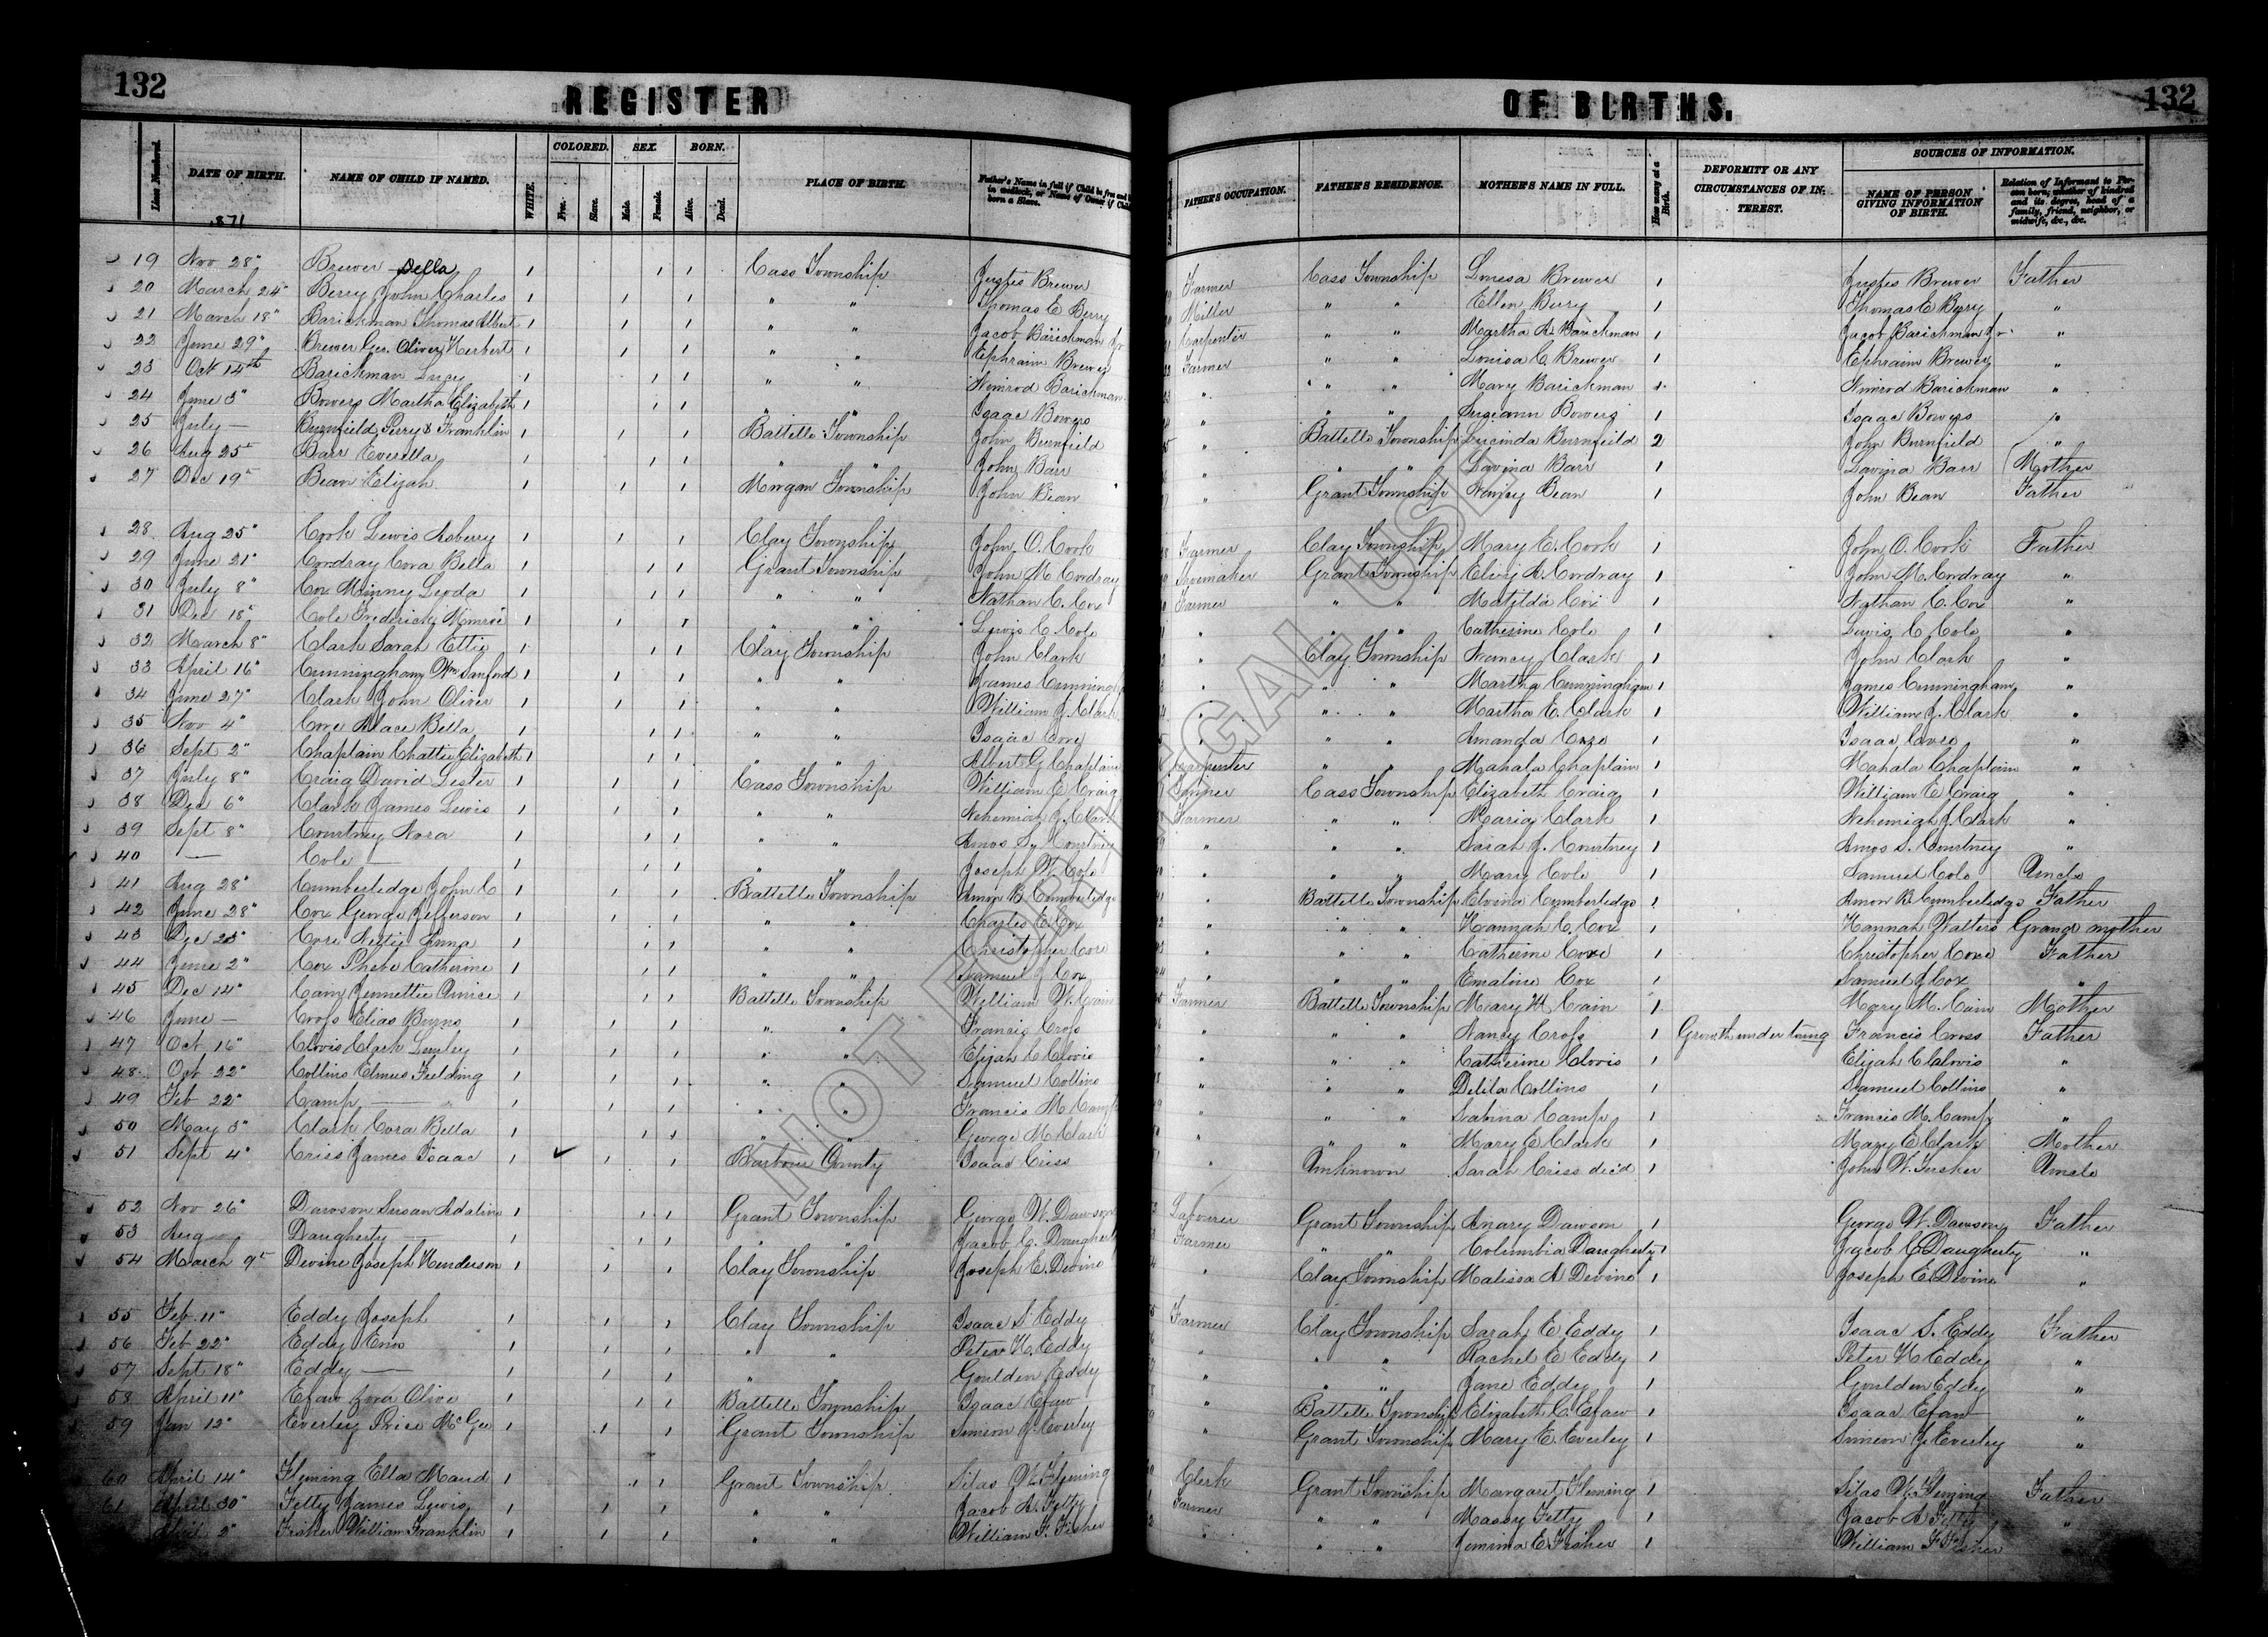 132
REGISTER OF BIRTHS.
132
Lines Numbered. DATE OF BIRTH. NAME OF CHILD IF NAMED. WHITE. COLORED. Free. Slave. SEX. Male. Female. BORN. Alive. Dead. PLACE OF BIRTH. Father's Name in full if Child be free and born in wedlock, or Name of Owner if Child born a Slave.
FATHER'S OCCUPATION. FATHER'S RESIDENCE. MOTHER'S NAME IN FULL. How many at a Birth. DEFORMITY OR ANY CIRCUMSTANCES OF INTEREST. SOURCES OF INFORMATION. NAME OF PERSON GIVING INFORMATION OF BIRTH. Relation of Informant to Person born; whether of kindred and its degree, head of a family, friend, neighbor, or midwife, &c., &c.
1871
19 Nov 28" Brewer Della 1 1 1 Cass Township Justes Brewer Farmer Cass Township Louisa Brewer 1 Justes Brewer Father
20 March 24" Berry John Charles 1 1 1 " " Thomas E Berry Miller " " Ellen Berry 1 Thomas E Berry "
21 March 18" Barickman Thomas Albert 1 1 1 " " Jacob Barickman Jr Carpenter " " Martha A. Barickman 1 Jacob Barickman Jr "
22 June 29" Brewer Geo. Oliver Herbert 1 1 1 " " Ephraim Brewer Farmer " " Louisa C Brewer 1 Ephraim Brewer "
23 Oct 14th Barickman Lucy 1 1 1 " " Nimrod Barickman " " " Mary Barickman 1 Nimrod Barickman "
24 June 3" Bowers Martha Elizabeth 1 1 1 " " Isaac Bowers " " " Susiann Bowers 1 Isaac Bowers "
25 July — Burnfield Perry & Franklin 1 1 1 Battelle Township John Burnfield " Battelle Township Lucinda Burnfield 2 John Burnfield "
26 Aug 25" Barr Everilla 1 1 1 " " John Barr " " " Lavina Barr 1 Lavina Barr Mother
27 Dec 19" Bean Elijah 1 1 1 Morgan Township John Bean " Grant Township Nancy Bean 1 John Bean Father
28 Aug 25" Cook Lewis Asberry 1 1 1 Clay Township John O. Cook Farmer Clay Township Mary E. Cook 1 John O. Cook Father
29 June 21" Cordray Cora Bella 1 1 1 Grant Township John M Cordray Shoemaker Grant Township A. Cordray 1 John M. Cordray "
30 July 8" Cox Minny Leoda 1 1 1 " " Nathan C. Cox Farmer " " Matilda Cox 1 Nathan C. Cox "
31 Dec 18" Cole Frederick Monroe 1 1 1 " " Lewis C. Cole " " " Catherine Cole 1 Lewis C Cole "
32 March 8" Clark Sarah Ettie 1 1 1 Clay Township John Clark " Clay Township Nancy Clark 1 John Clark "
33 April 16" Cunningham Wm Sanford 1 1 1 " " James Cunningham " " " Martha Cunningham 1 James Cunningham "
34 June 27" Clark John Oliver 1 1 1 " " William J. Clark " " " Martha E. Clark 1 William J. Clark "
35 Nov 4" Core Alace Bella 1 1 1 " " Isaac Core " " " Amanda Core 1 Isaac Core "
36 Sept 2" Chaplain Chattie Elizabeth 1 1 1 " " Albert G Chaplain Carpenter " " Mahala Chaplain 1 Mahala Chaplain "
37 July 8" Craig David Lester 1 1 1 Cass Township William E Craig Cass Township Elizabeth Craig 1 William E Craig "
38 Dec 6" Clark James Lewis 1 1 1 " " Nehemiah J. Clark Farmer " " Maria Clark 1 Nehemiah J. Clark "
39 Sept 8" Courtney Nora 1 1 1 " " Amos S. Courtney " " " Sarah J. Courtney 1 Amos S. Courtney "
40 — Cole — 1 1 1 " " Joseph W. Cole " " " Mary Cole 1 Samuel Cole Uncle
41 Aug 28" Cumberledge John C 1 1 1 Battelle Township Amon B. Cumberledge " Battelle Township Elvina Cumberledge 1 Amon B. Cumberledge Father
42 June 28" Cox George Jefferson 1 1 1 " " Charles E. Cox " " " Hannah C. Cox 1 Hannah Walters Grand mother
43 Dec 23" Core Nettie Anna 1 1 1 " " Christopher Core " " " Catherine Core 1 Christopher Core Father
44 June 2" Cox Phebe Catherine 1 1 1 " " Samuel J Cox " " " Emaline Cox 1 Samuel J Cox "
45 Dec 14" Cain Jennettie 1 1 1 Battelle Township William W. Cain Farmer Battelle Township Mary M Cain 1 Mary M. Cain Mother
46 June — Cross Elias Burns 1 1 1 " " Francis Cross " " " Nancy Cross 1 Growth under tung Francis Cross Father
47 Oct 16" Clovis Clark Lemley 1 1 1 " " Elijah C Clovis " " " Catherine Clovis 1 Elijah C Clovis "
48 Oct 22" Collins Elmus Fielding 1 1 1 " " Samuel Collins " " " Delila Collins 1 Samuel Collins "
49 Feb 22" Camp — 1 1 1 " " Francis M Camp " " " Sabina Camp 1 Francis M. Camp "
50 May 3" Clark Cora Bella 1 1 1 " " George M Clark " " " Mary E Clark 1 Mary E Clark Mother
51 Sept 4" Criss James Isaac 1 1 1 Barbour County Isaac Criss " Unknown Sarah Criss dec'd 1 John W. Uncle
52 Nov 26" Dawson Susan Adaline 1 1 1 Grant Township George W. Dawson Labourer Grant Township Anary Dawson 1 George W. Dawson Father
53 Aug — Daugherty — 1 1 1 " " Jacob C. Daugherty Farmer " " Columbia Daugherty 1 Jacob C Daugherty "
54 March 9" Devine Joseph Henderson 1 1 1 Clay Township Joseph E. Devine " Clay Township Malissa A Devine 1 Joseph E. Devine "
55 Feb 11" Eddy Joseph 1 1 1 Clay Township Isaac S Eddy Farmer Clay Township Sarah E Eddy 1 Isaac S. Eddy Father
56 Feb 22" Eddy Enos 1 1 1 " " Peter H. Eddy " " " Rachel E Eddy 1 Peter H Eddy "
57 Sept 18" Eddy — 1 1 1 " " Goulden Eddy " " " Jane Eddy 1 Goulden Eddy "
58 April 11" Efaw Zora Olive 1 1 1 Battelle Township Isaac Efaw " Battelle Township Elizabeth C. Efaw 1 Isaac Efaw "
59 Jan 12" Everley Price McGee 1 1 1 Grant Township Simeon J. Everley " Grant Township Mary E. Everley 1 Simeon J. Everley "
60 April 14" Fleming Ella Maud 1 1 1 Grant Township Silas W. Fleming Clerk Grant Township Margaret Fleming 1 Silas W. Fleming Father
61 April 30" Fetty James Lewis 1 1 1 " " Jacob A. Fetty Farmer " " Massy Fetty 1 Jacob A Fetty "
April 2" Fisher William Franklin 1 1 1 " " William F. Fisher " " " Jemima E. Fisher 1 William F Fisher
NOT FOR LEGAL USE